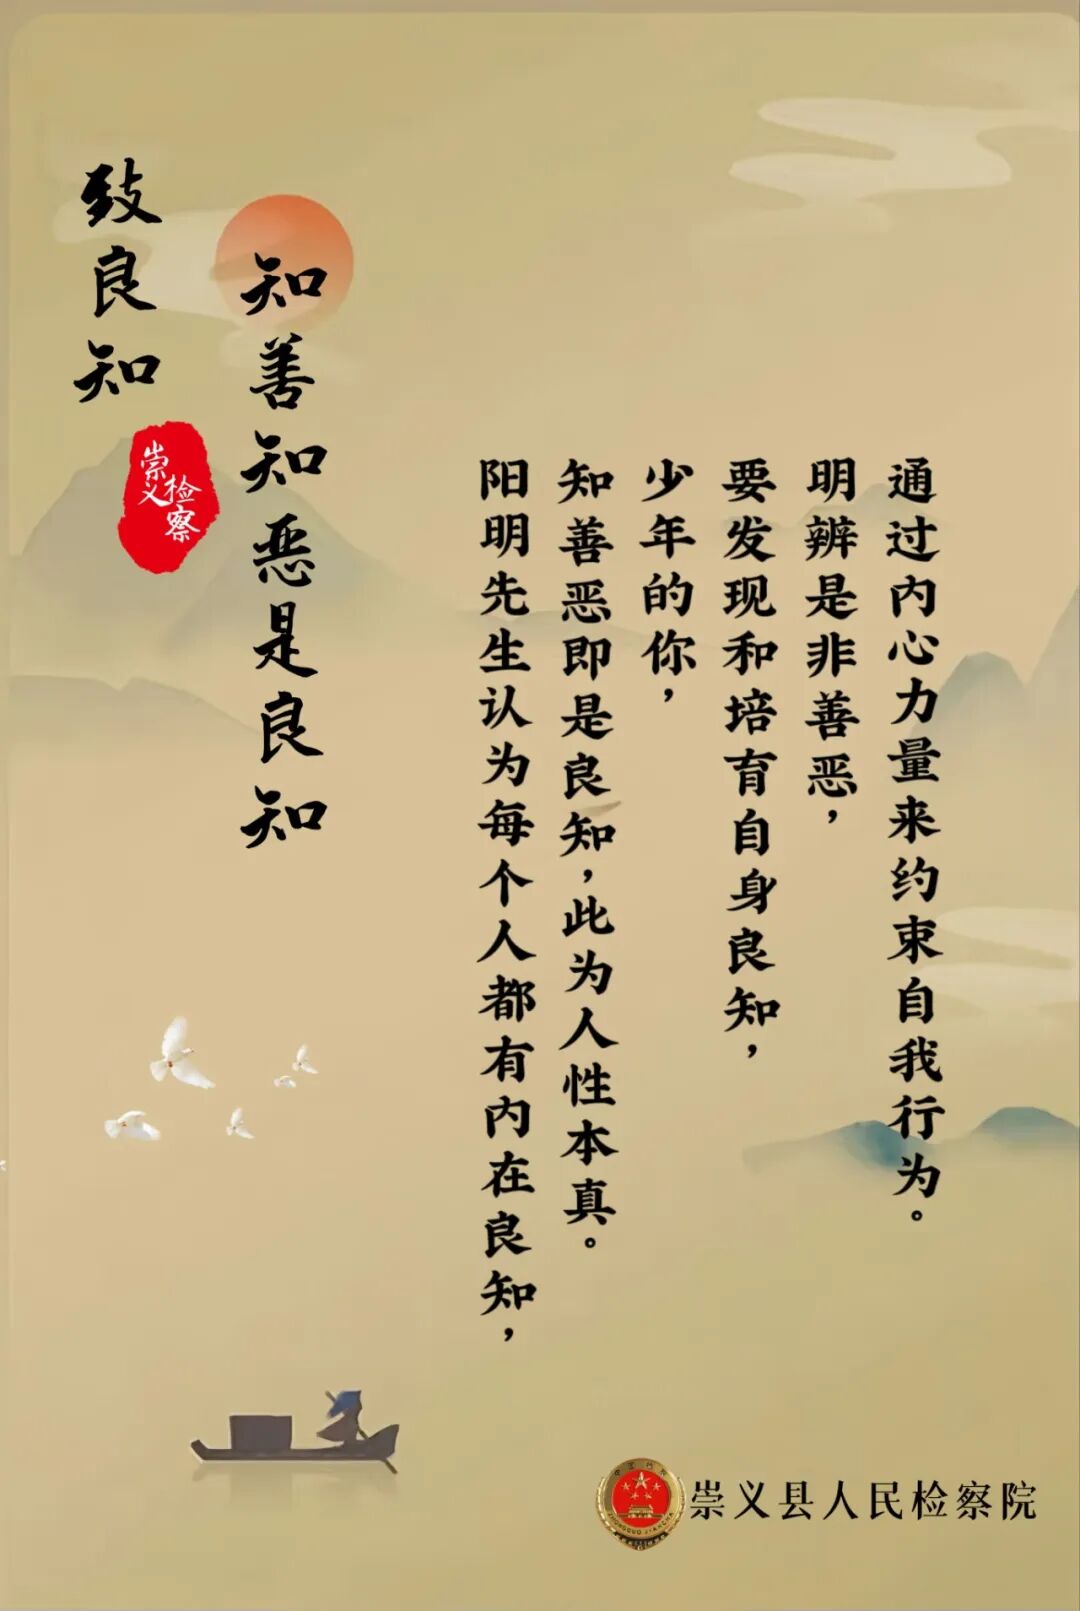 致良知
知善知恶是良知
崇义
检察
阳明先生认为每个人都有内在良知，
知善恶即是良知，此为人性本真。
少年的你，
要发现和培育自身良知，
明辨是非善恶，
通过内心力量来约束自我行为。
中国检察
ZHONGGUO JIANCHA
崇义县人民检察院